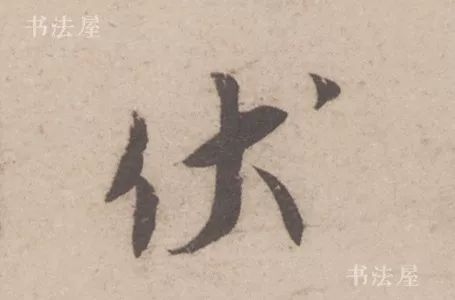 书法屋
伏
书法屋